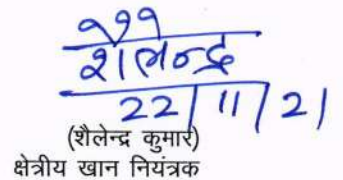 शैलेन्द्र
22/11/21
(शैलेन्द्र कुमार)
क्षेत्रीय खान नियंत्रक